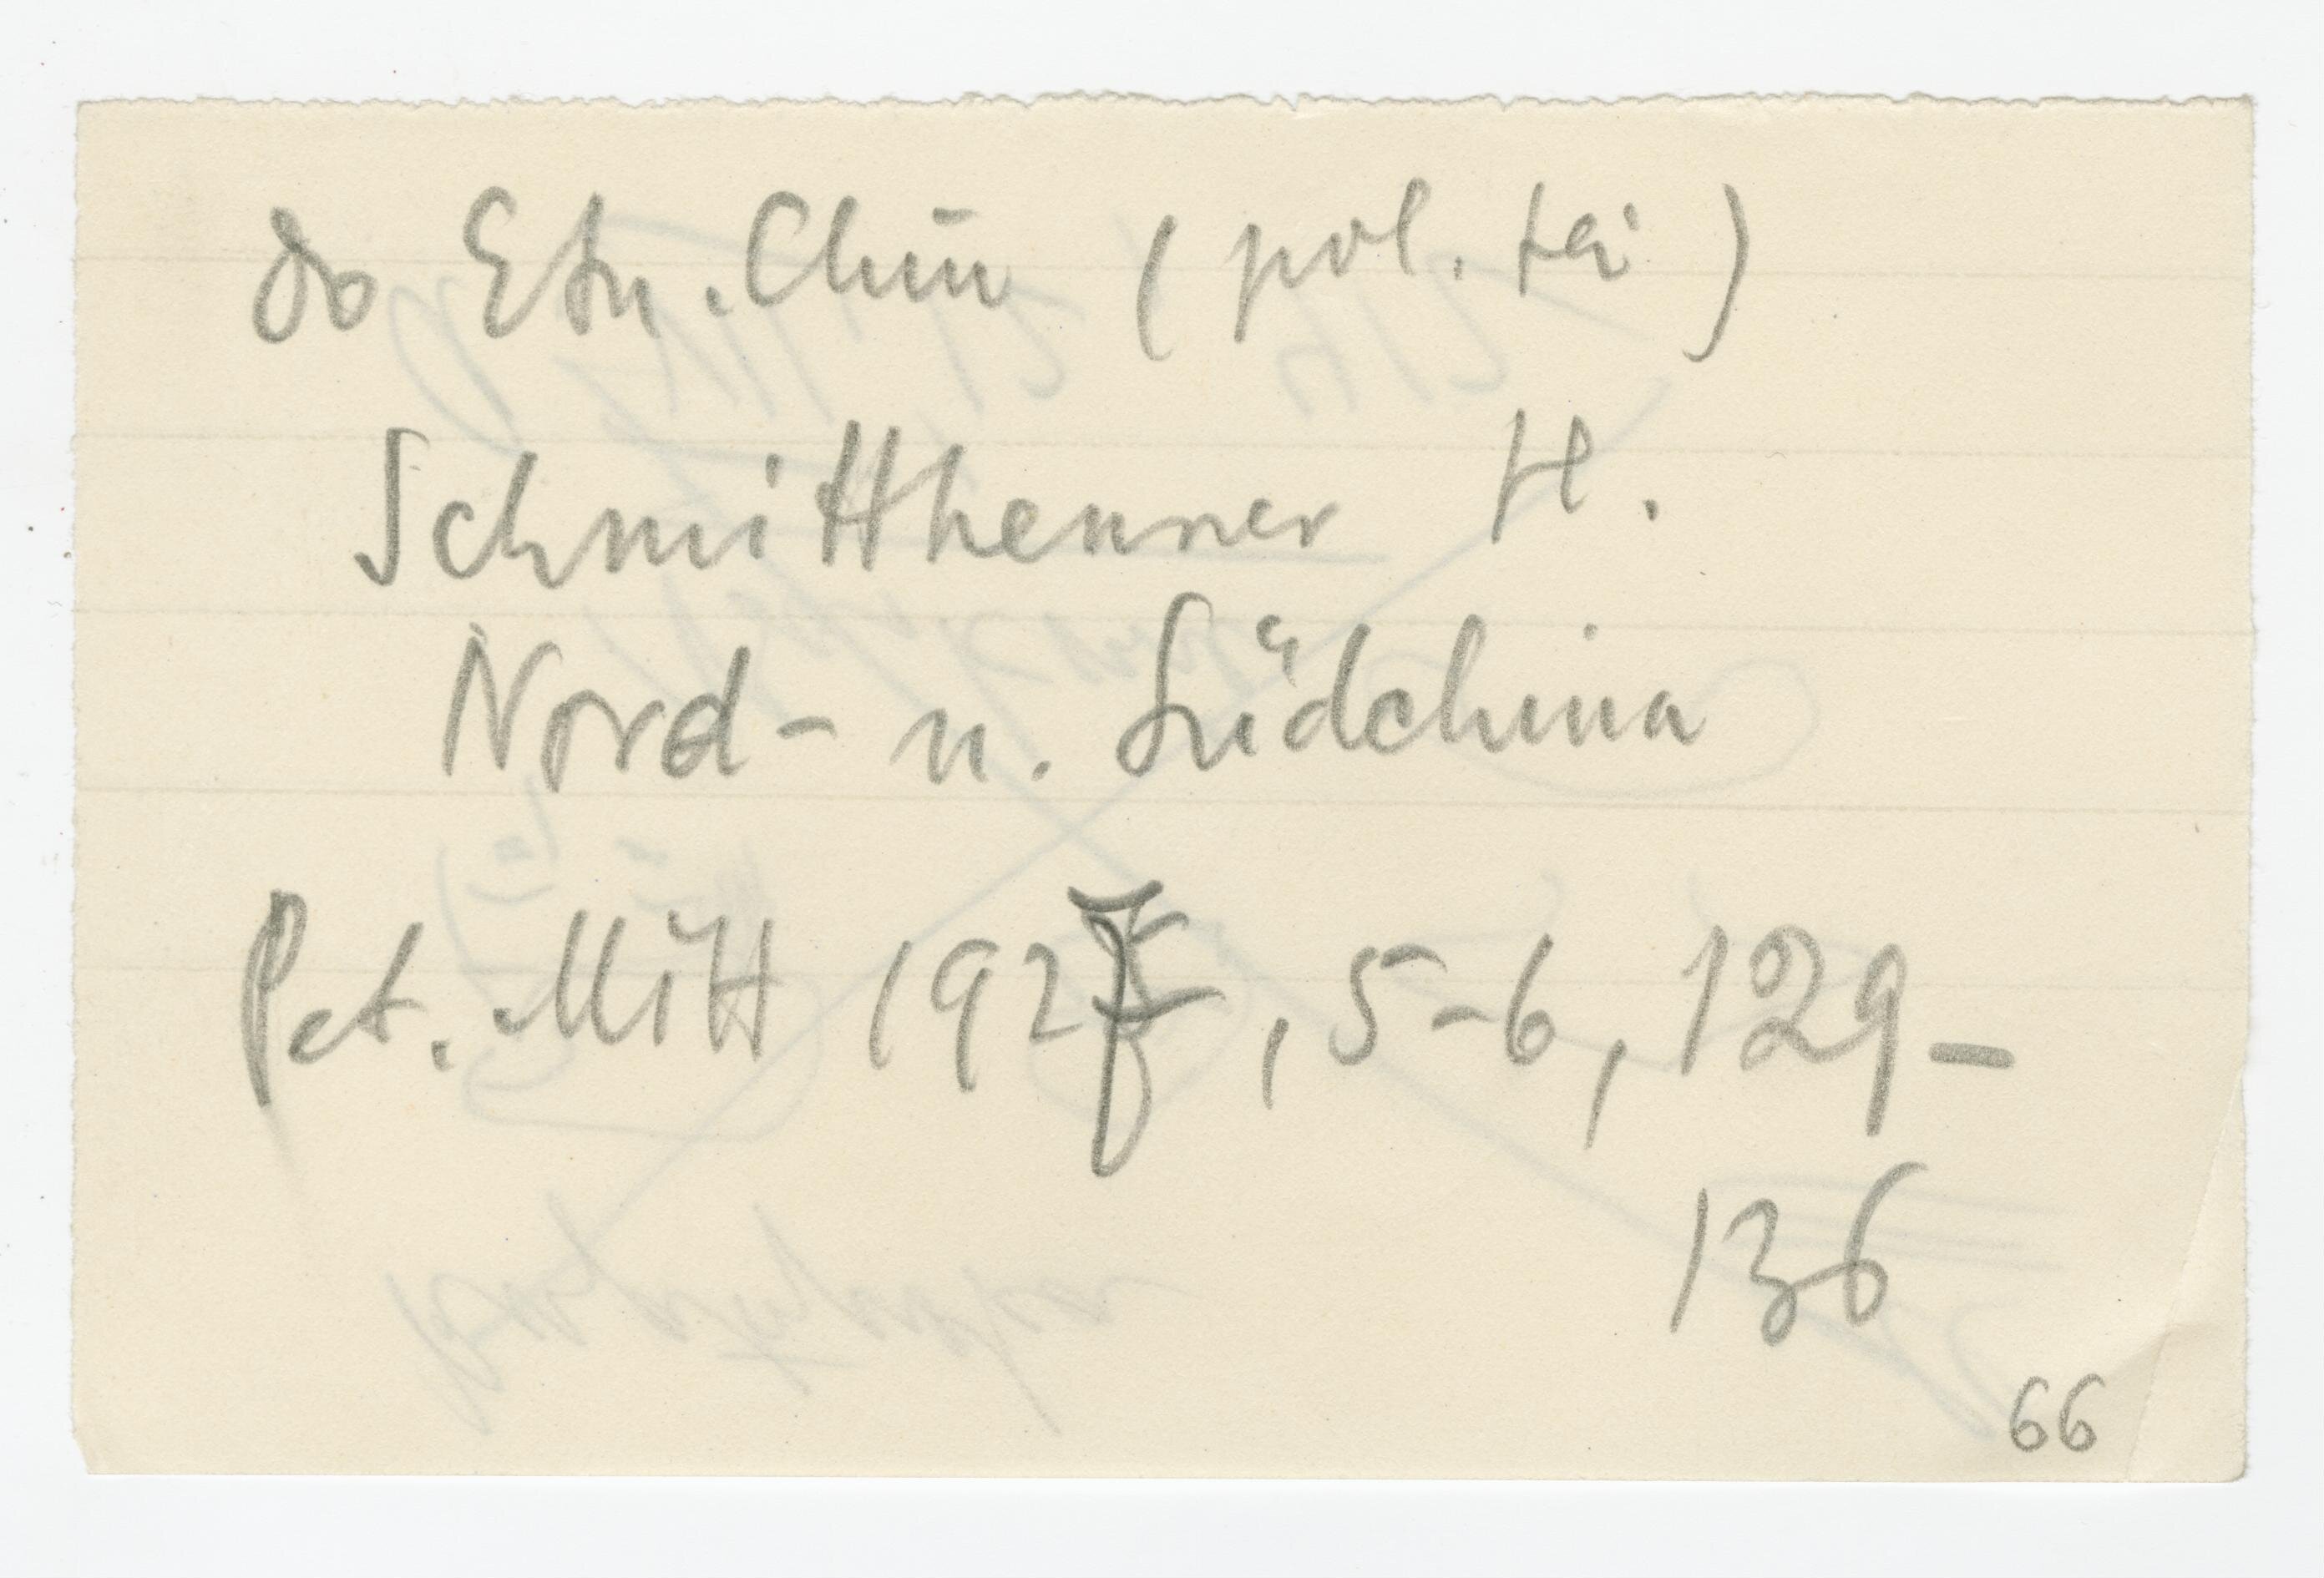 do Etn. Chin (pol. tei)
Schmitthenner H.
Nord- u. Südchina
Pet. Mitt 1927, 5-6, 129-
136
66